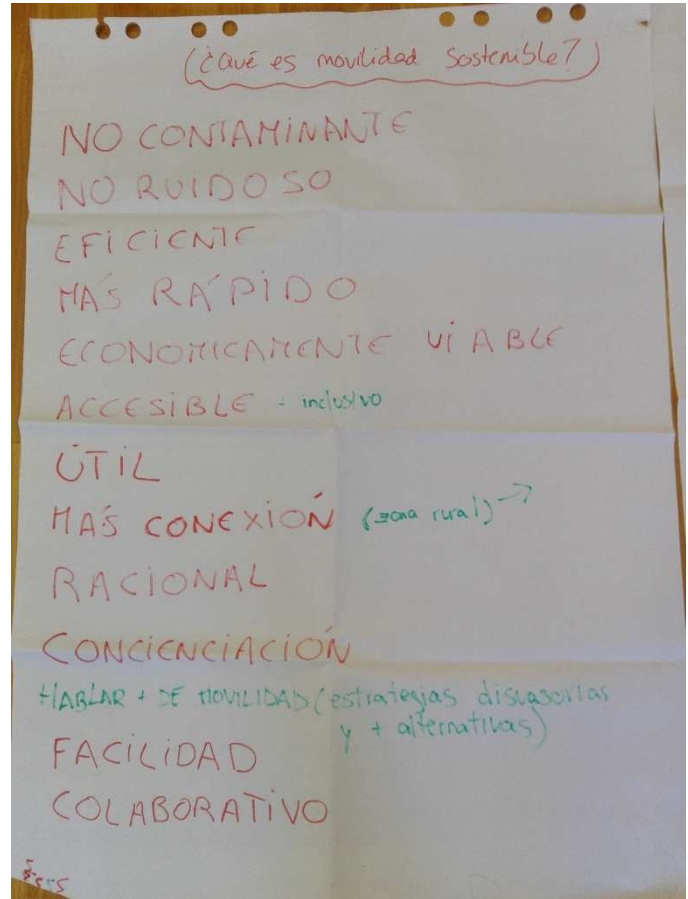 (¿Qué es movilidad sostenible?)
NO CONTAMINANTE
NO RUIDOSO
EFICIENTE
MÁS RÁPIDO
ECONOMICAMENTE VIABLE
ACCESIBLE - inclusivo
ÚTIL
MÁS CONEXIÓN (zona rural) →
RACIONAL
CONCIENCIACIÓN
HABLAR + DE MOVILIDAD (estrategias disuasorias
y + alternativas)
FACILIDAD
COLABORATIVO